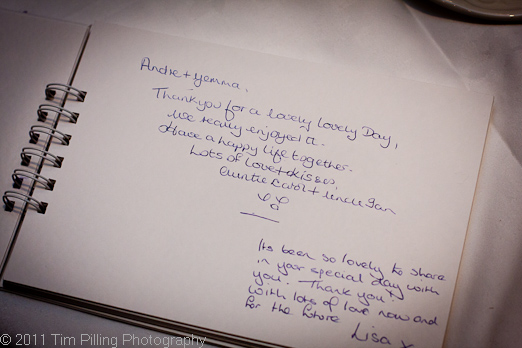 Andre + Gemma,
Thankyou for a lovely lovely Day,
We really enjoyed it.
Have a happy life together.
Lots of love + kisses,
Auntie Carol + Uncle Ian
Its been so lovely to share
in your special day with
you. Thank you!
With lots of love now and
for the future
Lisa x
© 2011 Tim Pilling Photography